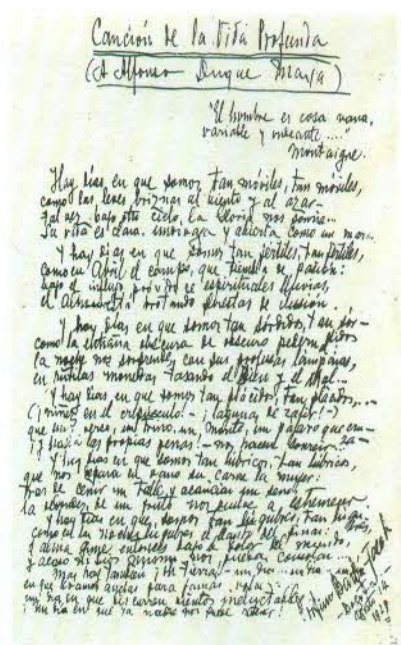 Canción de la Vida Profunda
(A Alfonso Duque Maya)
"El hombre es cosa vana,
variable y ondeante...."
Montaigne.
Hay días en que somos tan móviles, tan móviles,
como las leves briznas al viento y al azar—
Tal vez bajo otro cielo la Gloria nos sonría—
La vida es clara, undívaga y abierta como un mar...
Y hay días en que somos tan fértiles, tan fértiles,
como en Abril el campo, que tiembla de pasión:
bajo el influjo próvido de espirituales lluvias,
el alma está brotando florestas de ilusión.
Y hay días en que somos tan sórdidos, tan sór-
didos
como la entraña obscura de obscuro pedernal
la noche nos sorprende, con sus profusas lámparas,
en rútilas monedas tasando el Bien y el Mal...
Y hay días en que somos tan plácidos, tan plácidos,...
(¡niñez en el crepúsculo! — ¡lagunas de zafir!—)
que un verso, un trino, un monte, un pájaro que cru-
za
¡y hasta las propias penas! — nos hacen sonreír
Y hay días en que somos tan lúbricos, tan lúbricos,
que nos depara en vano su carne la mujer:
tras de ceñir un talle y acariciar un seno
la redondez de un fruto nos vuelve a estremecer
Y hay días en que somos tan lúgubres, tan lúgu-
bres,
como en las noches lúgubres el llanto del pinar:
el alma gime entonces bajo el dolor del mundo,
y acaso ni Dios mismo nos pueda consolar...
Mas hay también ¡oh Tierra! un día... un día... un día
en que levamos anclas para jamás volver:
un día en que discurren vientos ineluctables
¡un día en que ya nadie nos puede retener!
Porfirio Barba Jacob